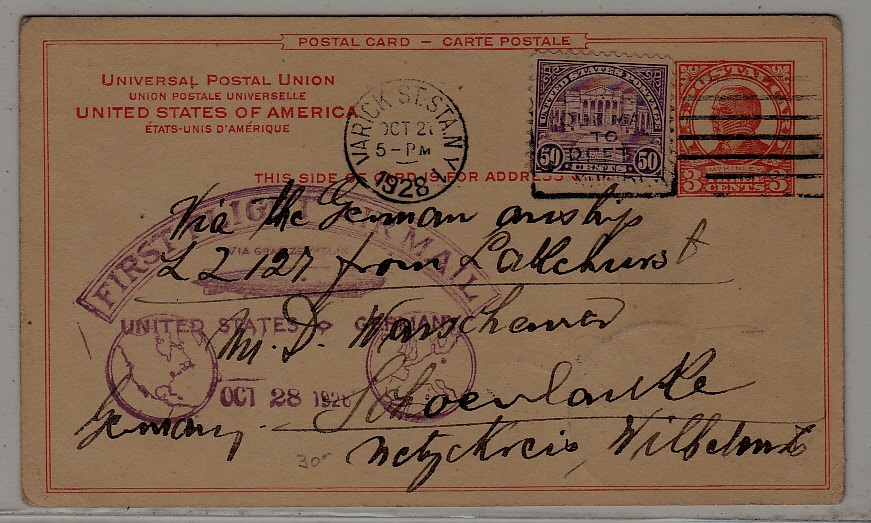 POSTAL CARD — CARTE POSTALE
UNIVERSAL POSTAL UNION
UNION POSTALE UNIVERSELLE
UNITED STATES OF AMERICA
ÉTATS-UNIS D'AMÉRIQUE
THIS SIDE OF CARD IS FOR ADDRESS
VARICK ST. STA. N.Y.
OCT 21
5-PM
1928
UNITED STATES POSTAGE
YOUR MAIL
TO
50 50
POSTAL
MCKINLEY
3 3
CENTS
FIRST FLIGHT AIR MAIL
VIA GRAF ZEPPELIN
UNITED STATES GERMANY
OCT 28 1928
Via the German airship
L Z 127 from Lakehurst
M. D. Warschauer
Schoenlanke
Germany.
Netzkreis,
30